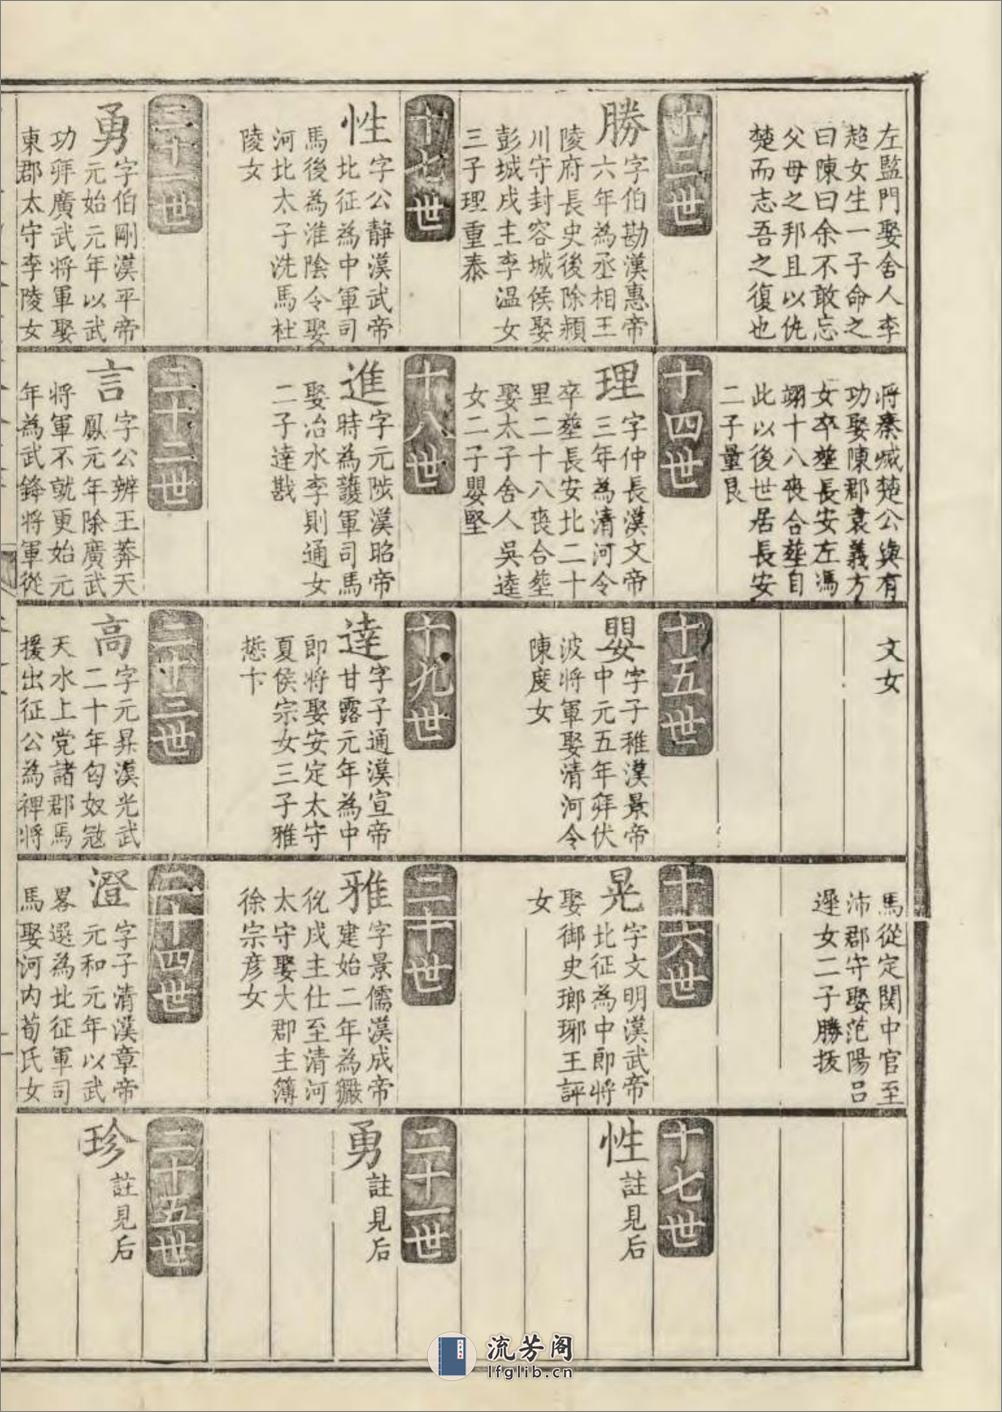 左監門娶舍人李
趙女生一子命之
曰陳曰余不敢忘
父母之邦且以仇
楚而志吾之復也
將秦滅楚公與有
功娶陳郡袁義方
女卒塟長安左馮
翊十八喪合塟自
此以後世居長安
二子量艮
文女
馬從定関中官至
沛郡守娶范陽呂
遲女二子勝拔
十三世
勝字伯勘漢惠帝
六年為丞相王
陵府長史後除潁
川守封容城侯娶
彭城戍主李温女
三子理重泰
十四世
理字仲長漢文帝
三年為清河令
卒塟長安北二十
里二十八喪合塟
娶太子舍人吳逵
女二子嬰堅
十五世
嬰字子稚漢景帝
中元五年拜伏
波將軍娶清河令
陳度女
十六世
晃字文明漢武帝
北征為中即將
娶御史瑯琊王評
女
十七世
性註見后
十七世
性字公靜漢武帝
北征為中軍司
馬後為淮陰令娶
河比太子洗馬杜
陵女
十八世
進字元陟漢昭帝
時為護軍司馬
娶治水李則通女
二子達戡
十九世
達字子通漢宣帝
甘露元年為中
即將娶安定太守
夏侯宗女三子雅
愻卞
二十世
雅字景儒漢成帝
建始二年為獗
㐽戍主仕至清河
太守娶大郡主簿
徐宗彦女
二十一世
勇註見后
二十一世
勇字伯剛漢平帝
元始元年以武
功拜廣武將軍娶
東郡太守李陵女
二十二世
言字公辨王莽天
鳳元年除廣武
將軍不就更始元
年為武鋒將軍從
二十三世
高字元昇漢光武
二十年匈奴㓂
天水上党諸郡馬
援出征公為裨將
二十四世
澄字子清漢章帝
元和元年以武
畧選為北征軍司
馬娶河內荀氏女
二十五世
珍註見后
流芳阁
lfglib.cn